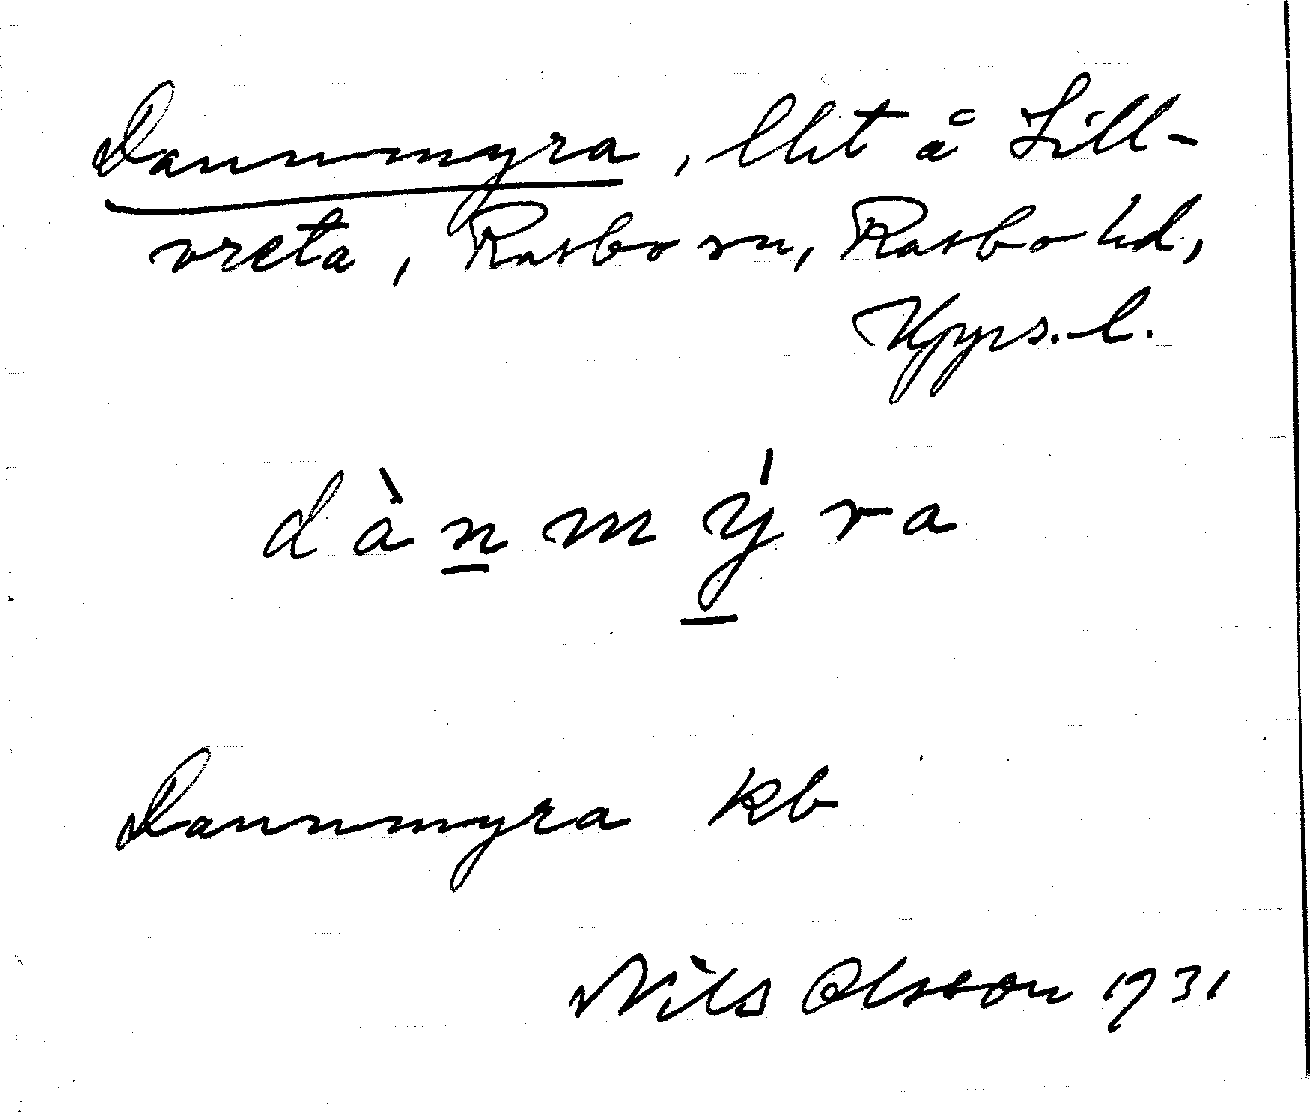 Dannmyra, lht å Lill-
vreta, Rasbo sn, Rasbo hd,
Upps. l.
dànmýra
Dannmyra kb
Nils Olsson 1931